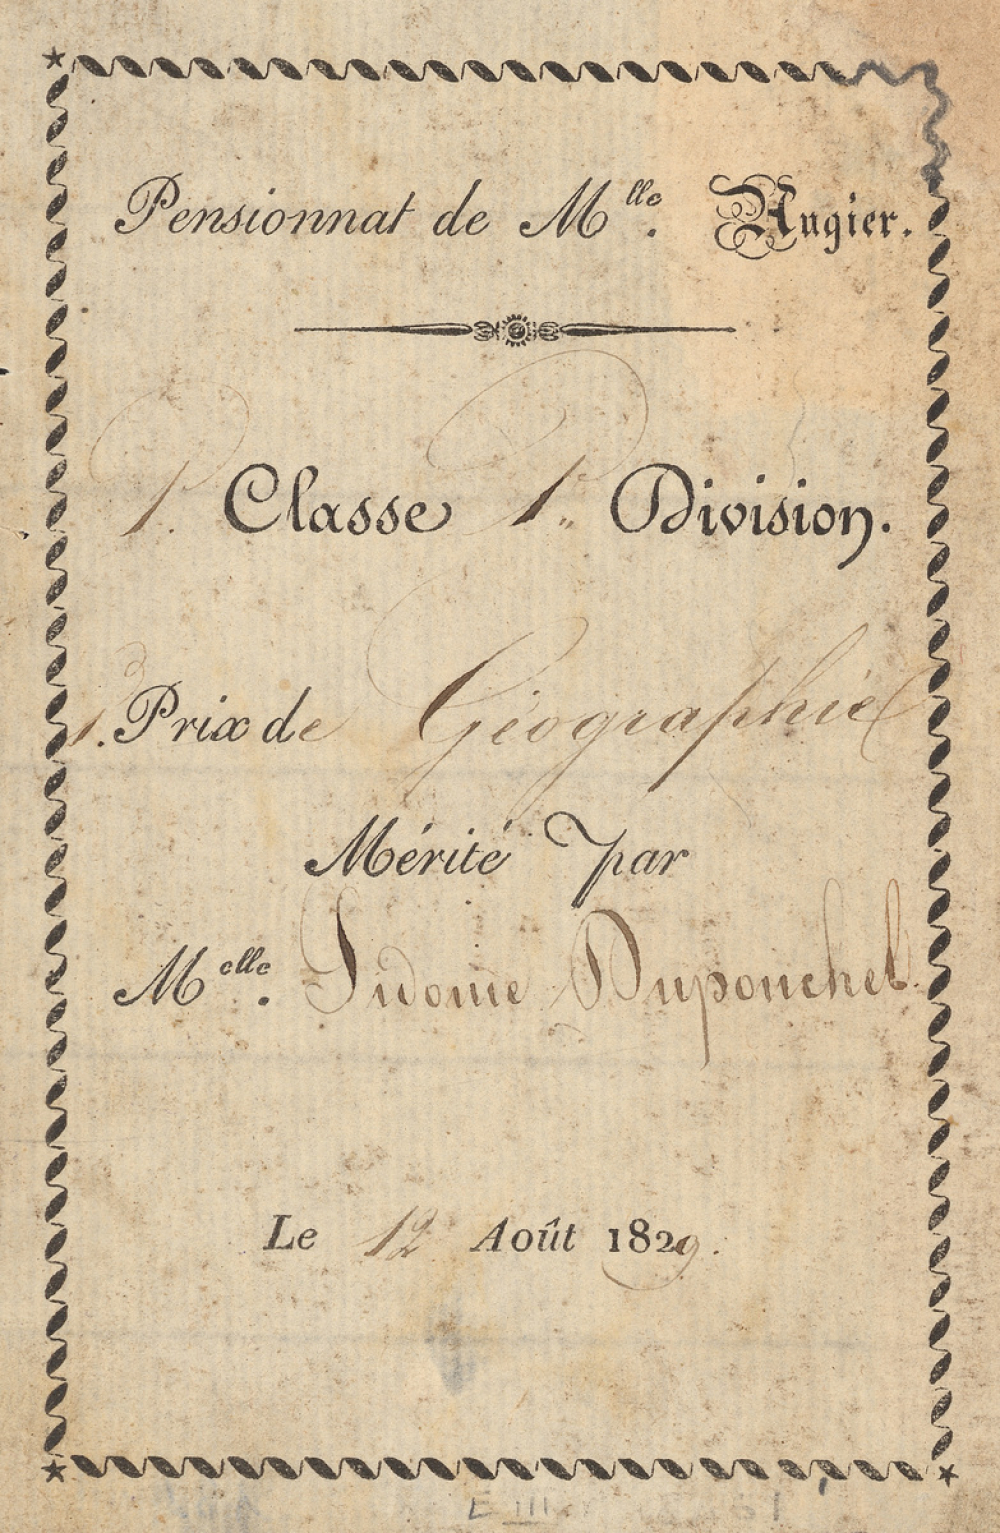 Pensionnat de Mlle. Augier.
1e. Classe 1e.. Division.
1. Prix de Géographie
Mérité par
Melle. Sidonie Duponchel.
Le 12 Août 1829.
E III